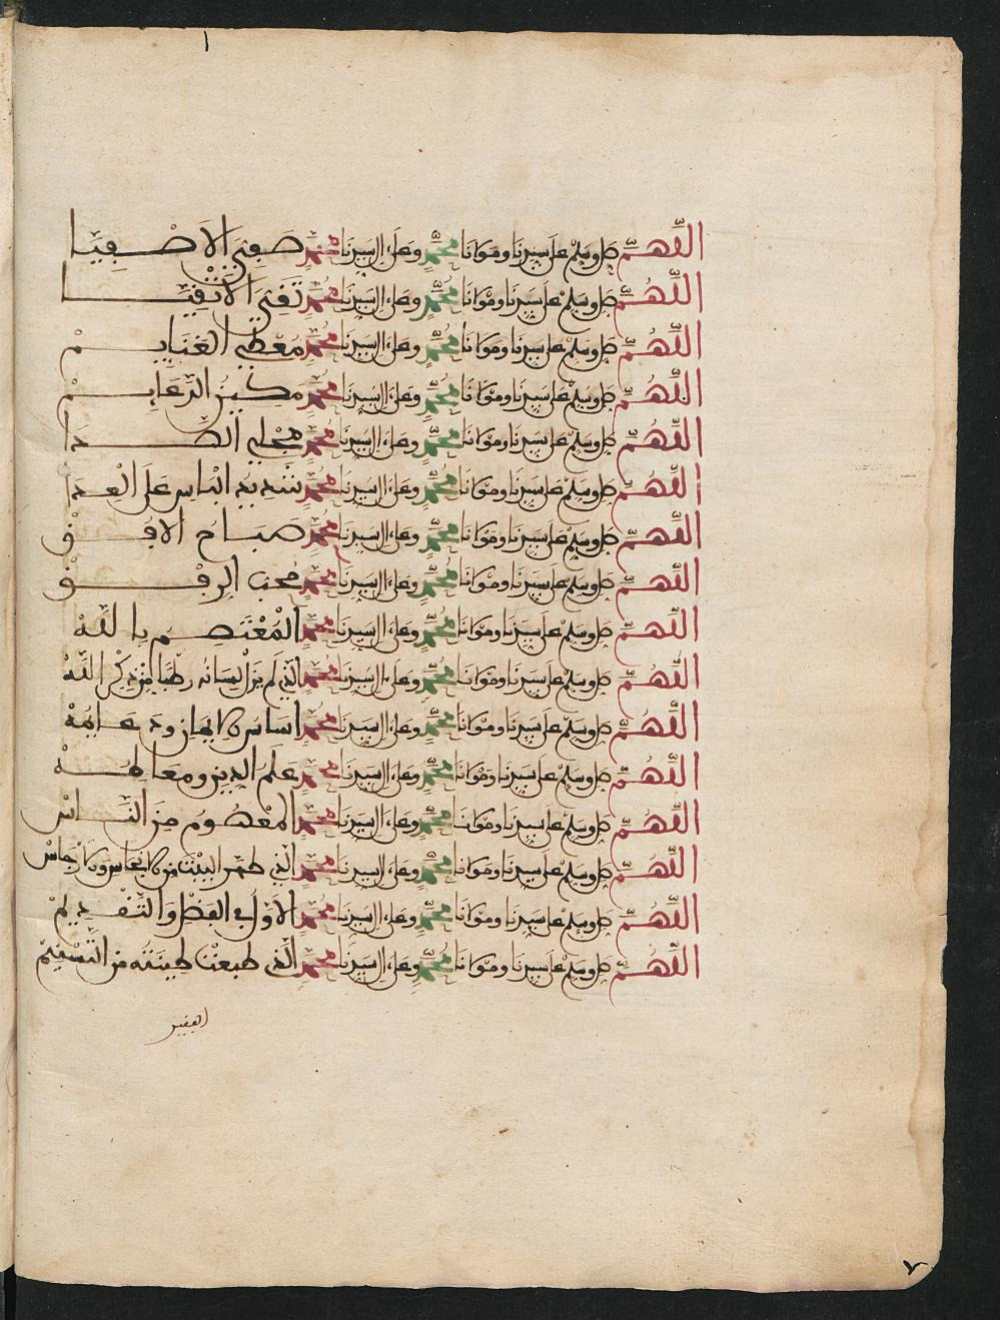 اللهم صل وسلم على سيدنا ومولانا محمد وعلى ال سيدنا محمد صفي الاصفيا
اللهم صل وسلم على سيدنا ومولانا محمد وعلى ال سيدنا محمد تقي الاتقيا
اللهم صل وسلم على سيدنا ومولانا محمد وعلى ال سيدنا محمد معطي الغنايم
اللهم صل وسلم على سيدنا ومولانا محمد وعلى ال سيدنا محمد
اللهم صل وسلم على سيدنا ومولانا محمد وعلى ال سيدنا محمد مجلي الصدا
اللهم صل وسلم على سيدنا ومولانا محمد وعلى ال سيدنا محمد شديد الباس على العدا
اللهم صل وسلم على سيدنا ومولانا محمد وعلى ال سيدنا محمد صباح الافق
اللهم صل وسلم على سيدنا ومولانا محمد وعلى ال سيدنا محمد محب الرفق
اللهم صل وسلم على سيدنا ومولانا محمد وعلى ال سيدنا محمد المعتصم بالله
اللهم صل وسلم على سيدنا ومولانا محمد وعلى ال سيدنا محمد الذي لم يزل لسانه رطبا من ذكر الله
اللهم صل وسلم على سيدنا ومولانا محمد وعلى ال سيدنا محمد اساس الايمان ودعايمه
اللهم صل وسلم على سيدنا ومولانا محمد وعلى ال سيدنا محمد علم الدين ومعالمه
اللهم صل وسلم على سيدنا ومولانا محمد وعلى ال سيدنا محمد المعصوم من الناس
اللهم صل وسلم على سيدنا ومولانا محمد وعلى ال سيدنا محمد الذي طهر البيت من الانجاس والارجاس
اللهم صل وسلم على سيدنا ومولانا محمد وعلى ال سيدنا محمد الاول في الفضل والتقديم
اللهم صل وسلم على سيدنا ومولانا محمد وعلى ال سيدنا محمد الذي طبعت طينته من التسنيم